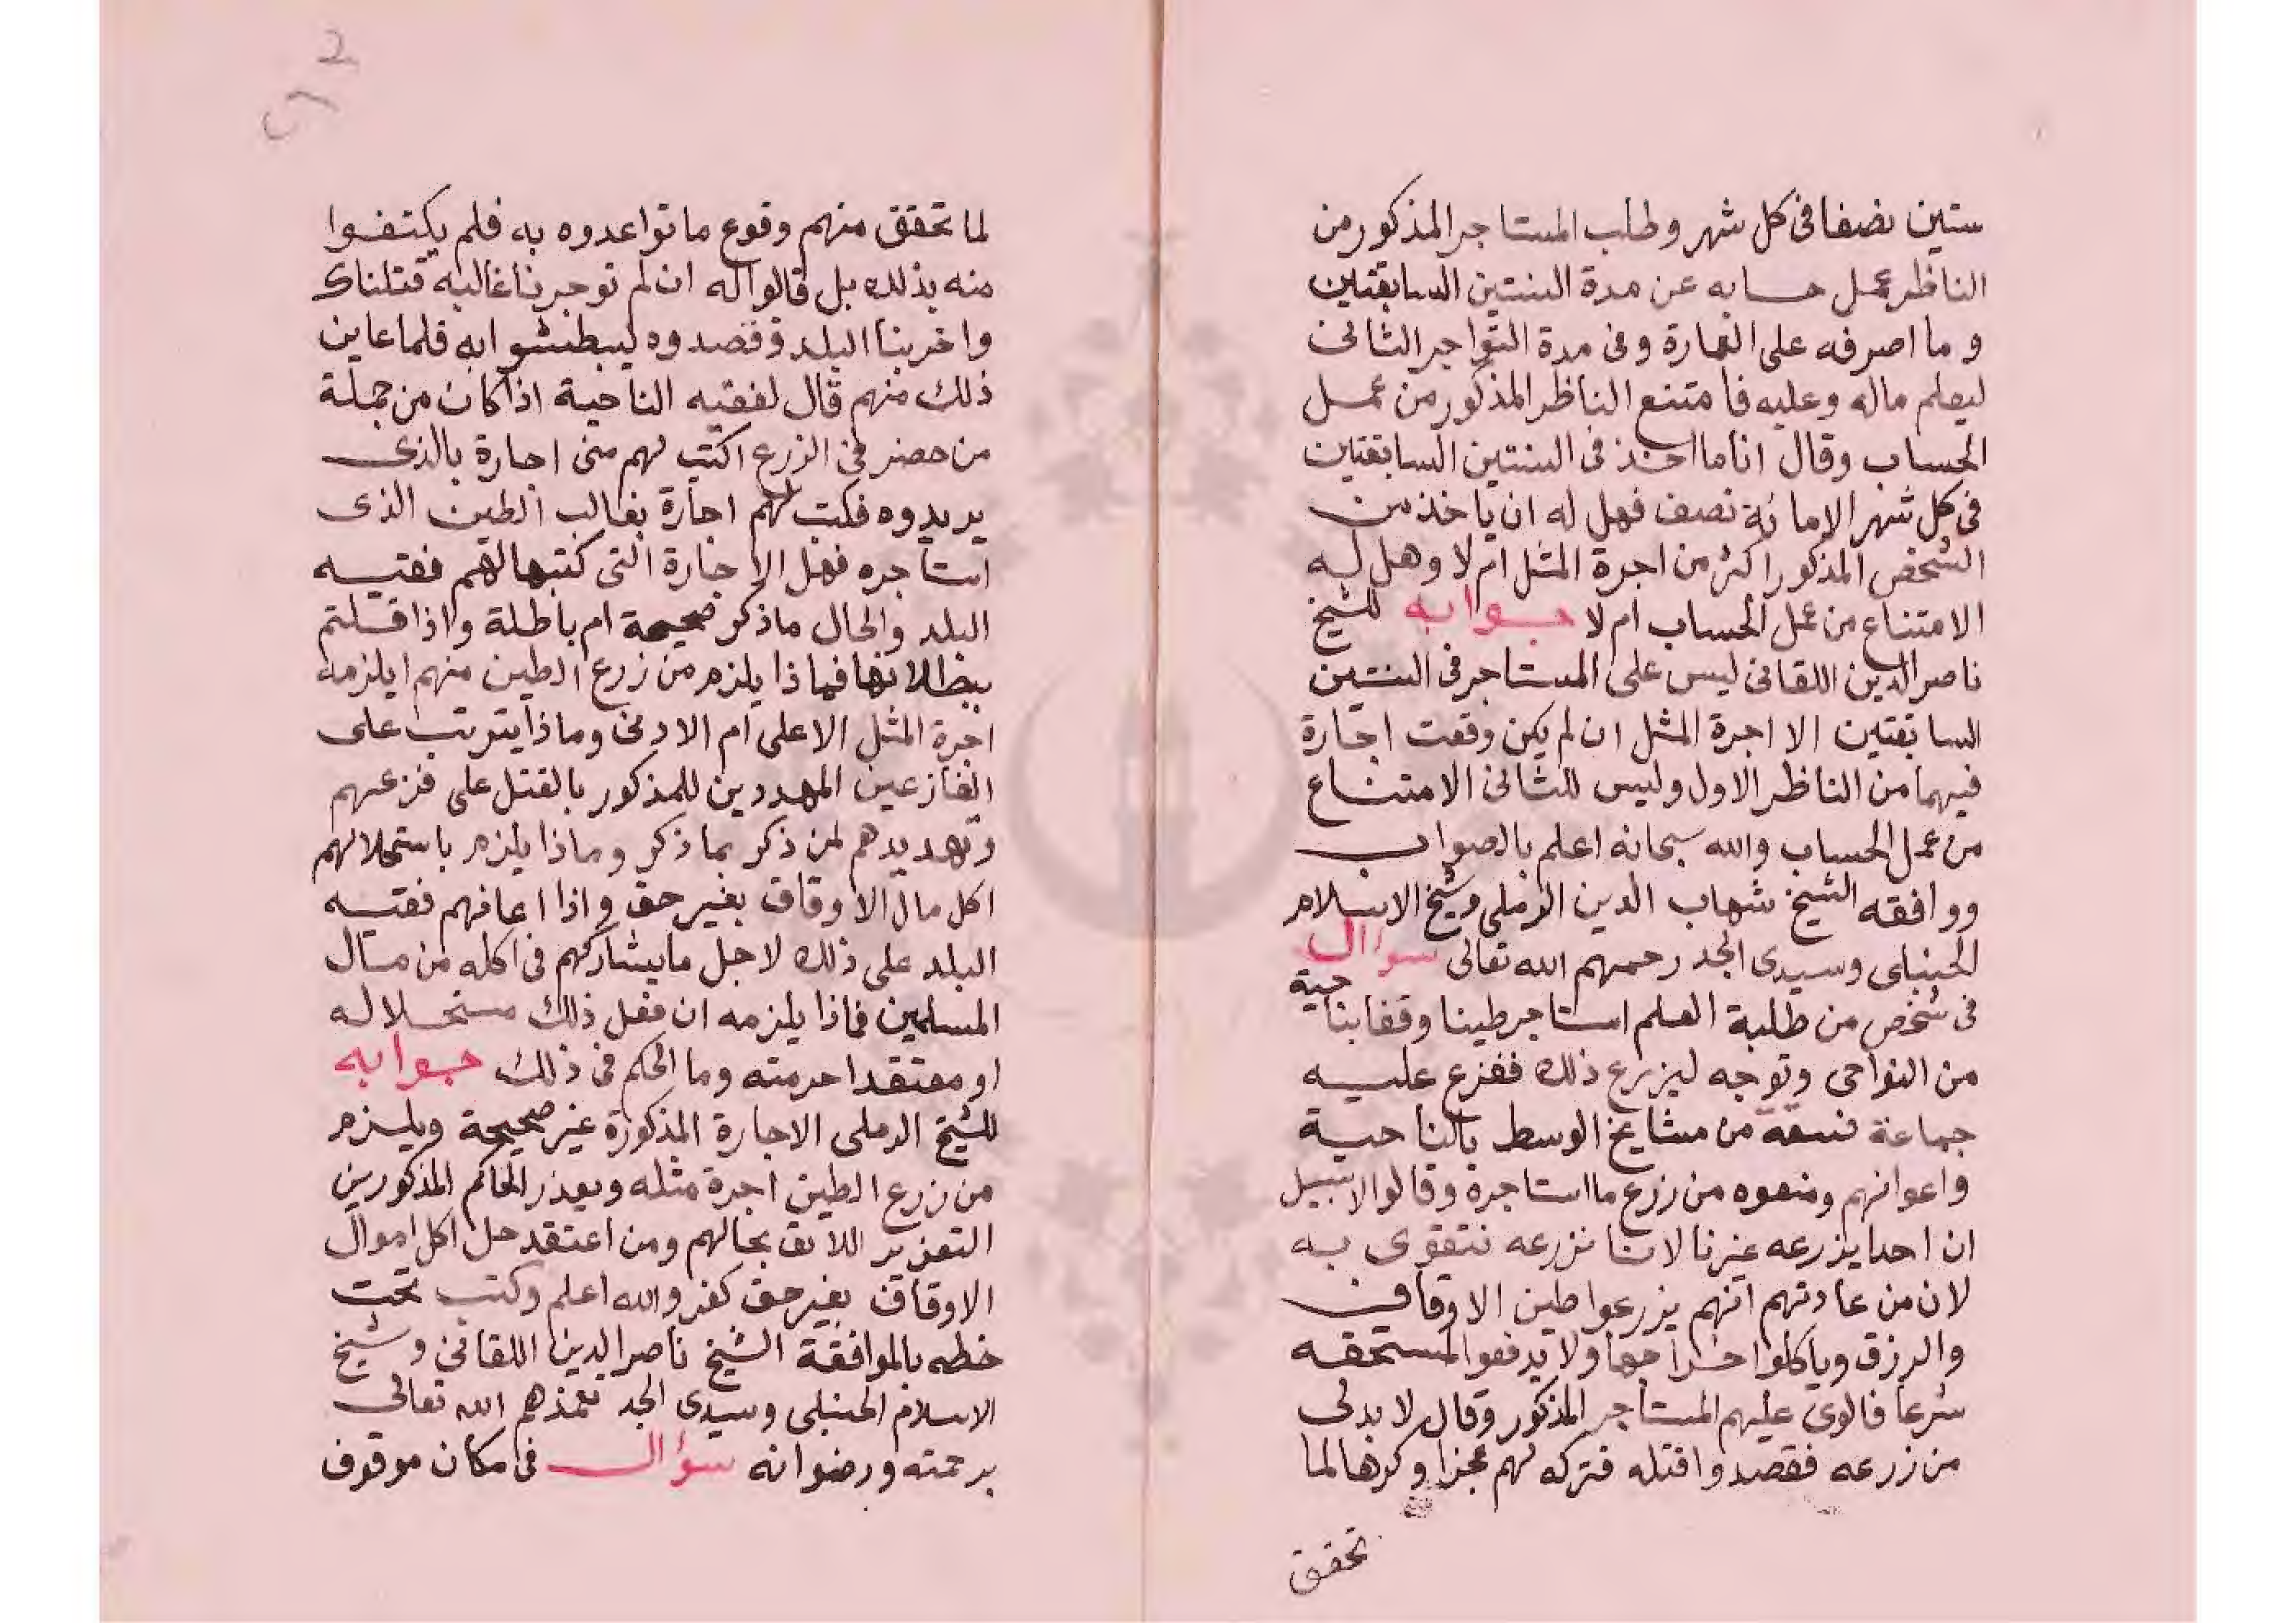 ستين نصفا فى كل شهر وطلب المستاجر المذكور من
الناظر عمل حسابه عن مدة السنتين السابقتين
وما اصرفه على العمارة وفى مدة التواجر الثانى
ليعلم ماله وعليه فامتنع الناظر المذكور من عمل
الحساب وقال انا ما اخذ فى السنتين السابقتين
فى كل شهر الا مائة نصف فهل له ان ياخذ من
الشخص المذكور اكثر من اجرة المثل ام لا وهل له
الامتناع من عمل الحساب ام لا جوابه للشيخ
ناصر الدين اللقانى ليس على المستاجر فى السنتين
السابقتين الا اجرة المثل ان لم يكن وقعت اجارة
فيهما من الناظر الاول وليس للثانى الامتناع
من عمل الحساب والله سبحانه اعلم بالصواب
ووافقه الشيخ شهاب الدين الرملى وشيخ الاسلام
الحنبلى وسيدى الجد رحمهم الله تعالى سوال
فى شخص من طلبة العلم استاجر طينا وقفا بناحية
من النواحى وتوجه ليزرع ذلك ففزع عليه
جماعة فسقة من مشايخ الوسط بالناحية
واعوانهم ومنعوه من زرع ما استاجره وقالوا لا سبيل
ان احدا يزرعه غيرنا لاننا نزرعه نتقوى به
لان من عادتهم انهم يزرعوا طين الاوقاف
والرزق وياكلوا خراجها ولا يدفعوا لمستحقه
شرعا فالوى عليهم المستاجر المذكور وقال لا بد لى
من زرعه فقصدوا قتله فتركه لهم عجزا وكرها لما
تحقق
لما تحقق منهم وقوع ما تواعدوه به فلم يكتفوا
منه بذلك بل قالوا له ان لم توجرنا غالبه قتلناك
واخربنا البلد وقصدوه ليبطشوا به فلما عاين
ذلك منهم قال لفقيه الناحية اذ كان من جملة
من حضر فى الزرع اكتب لهم منى اجارة بالذى
يريدوه فكتب لهم اجارة بغالب الطين الذى
استاجره فهل الاجارة التى كتبها لهم فقيه
البلد والحال ماذكر صحيحة ام باطلة واذا قلتم
ببطلانها فماذا يلزم من زرع الطين منهم ايلزمه
اجرة المثل الاعلى ام الادنى وماذا يترتب على
الفازعين المهددين للمذكور بالقتل على فزعهم
وتهديدهم لمن ذكر بما ذكر وماذا يلزم باستحلالهم
اكل مال الاوقاف بغير حق واذا اعانهم فقيه
البلد على ذلك لاجل ما يشاركهم فى اكله من مال
المسلمين فماذا يلزمه ان فعل ذلك مستحلا له
او معتقدا حرمته وما الحكم فى ذلك جوابه
للشيخ الرملى الاجارة المذكورة غير صحيحة ويلزم
من زرع الطين اجرة مثله ويعذر الحاكم المذكورين
التعزير اللائق بحالهم ومن اعتقد حل اكل اموال
الاوقاف بغير حق كفر والله اعلم وكتب تحت
خطه بالموافقة الشيخ ناصر الدين اللقانى وشيخ
الاسلام الحنبلى وسيدى الجد تغمذهم الله تعالى
برحمته ورضوانه سؤال فى مكان موقوف